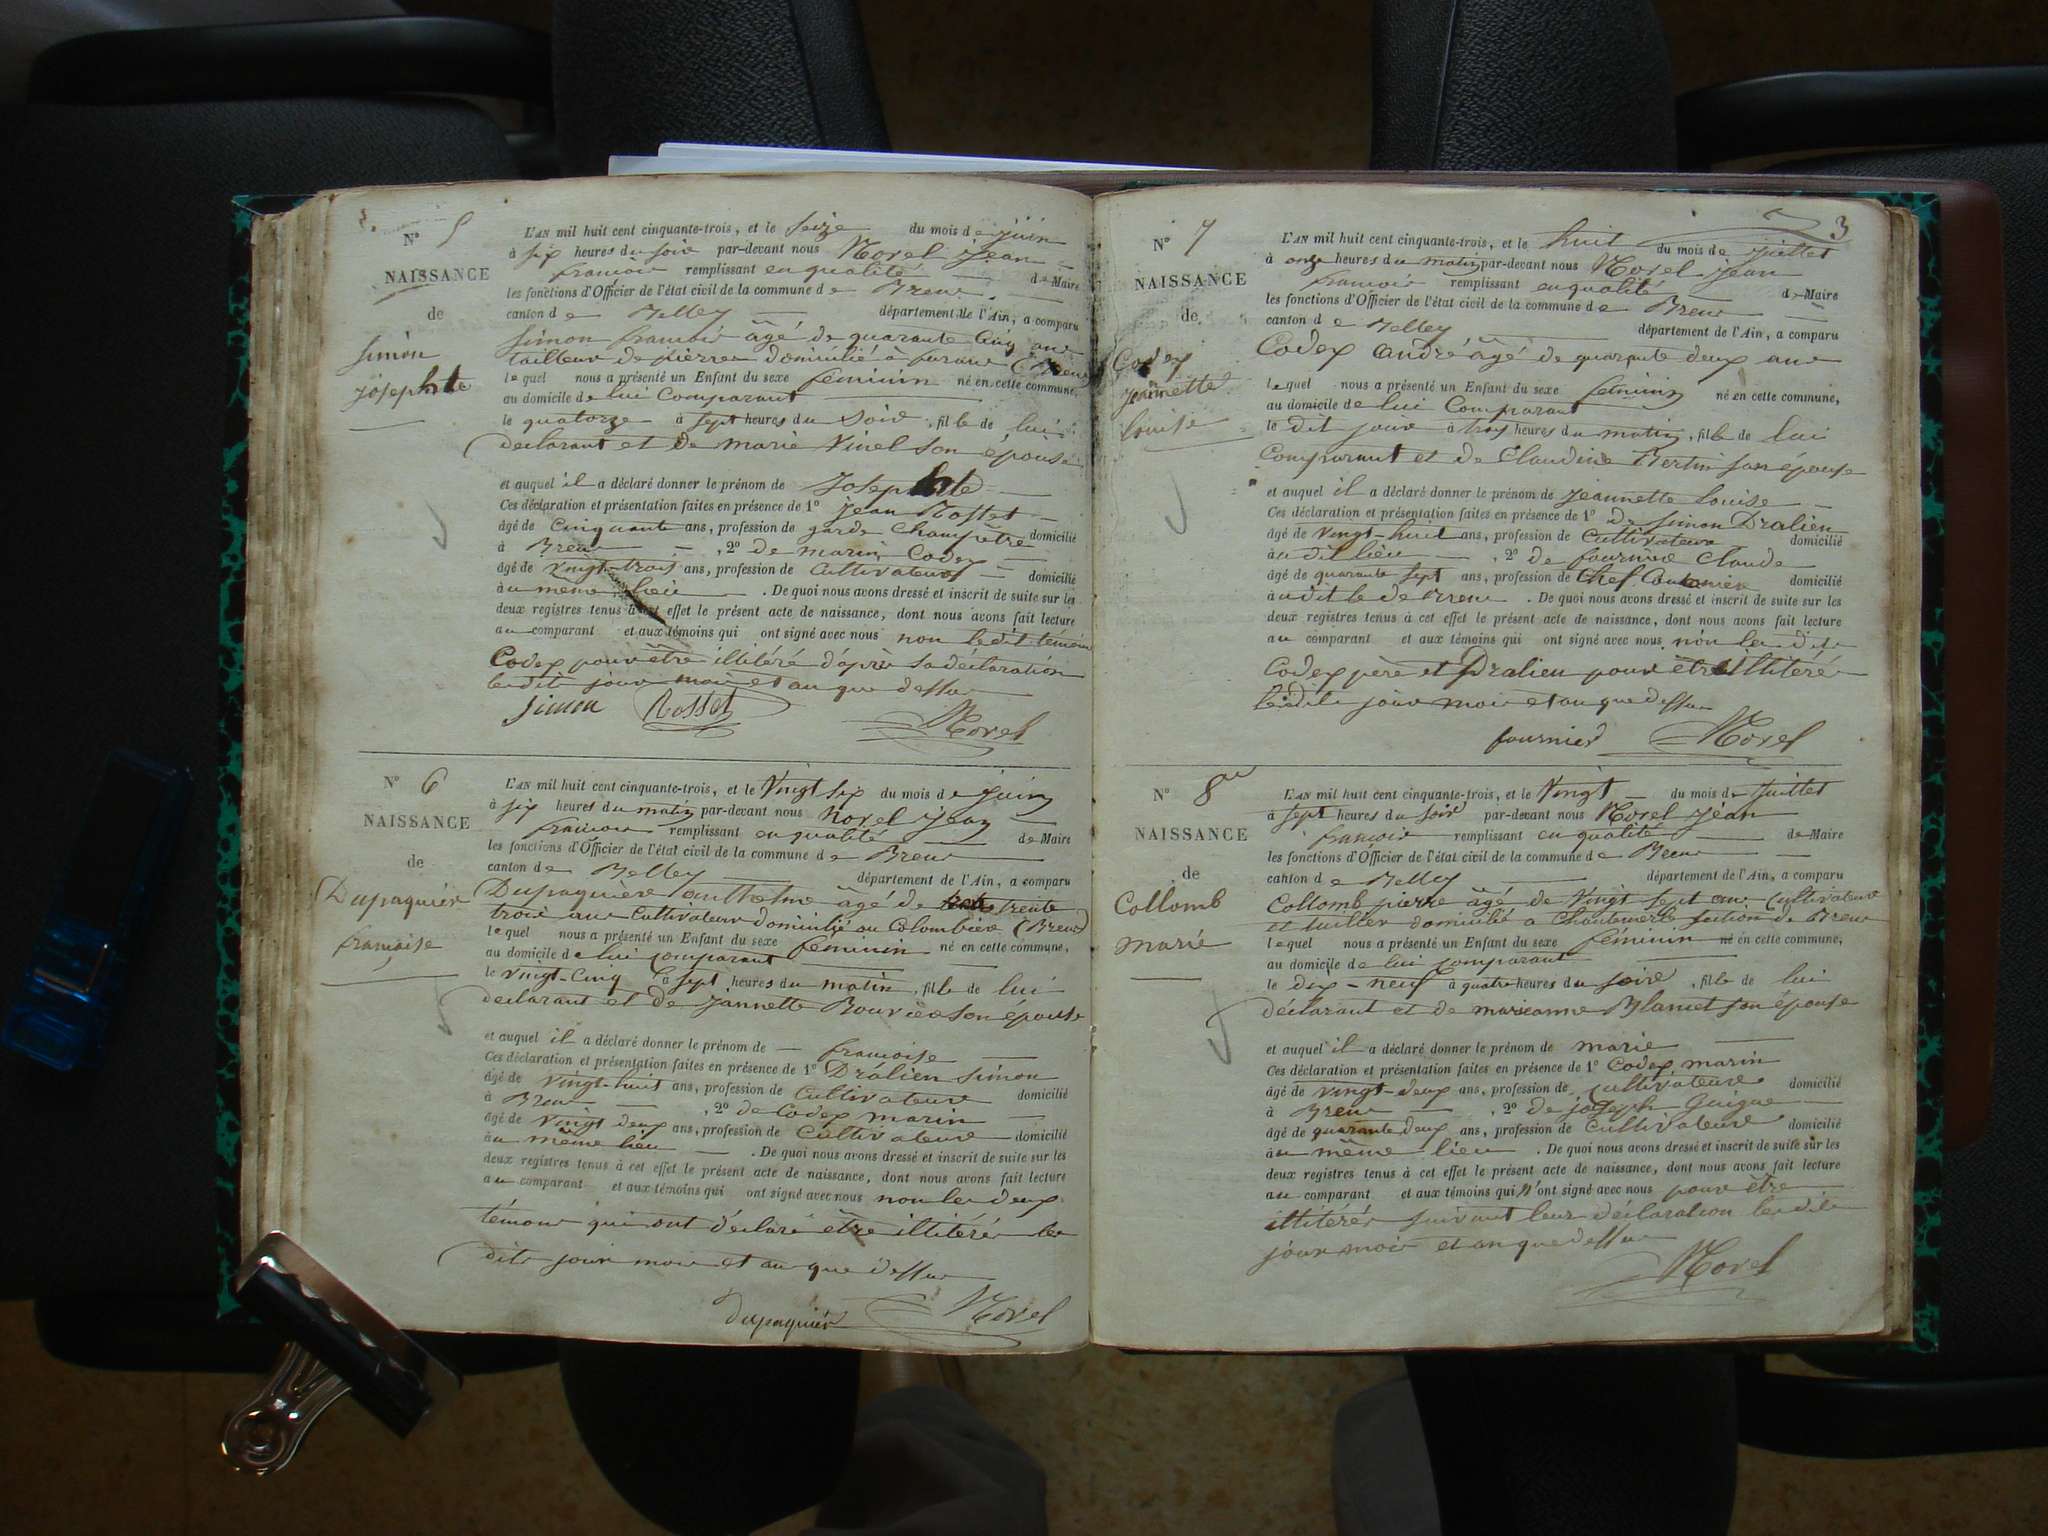 N° 5
NAISSANCE
de
Simon
josephte
L'AN mil huit cent cinquante-trois, et le seize du mois de juin
à six heures du soir par-devant nous Morel jean
françois remplissant en qualité de Maire
les fonctions d'Officier de l'état civil de la commune de Brens
canton de Belley département de l'Ain, a comparu
Simon françois âgé de quarante cinq ans
tailleur de pierres domicilié à (Brens)
lequel nous a présenté un Enfant du sexe feminin né en cette commune,
au domicile de lui Comparant
le quatorze à sept heures du soir, fille de lui
déclarant et de marie Vinel son épouse
et auquel il a déclaré donner le prénom de Josephte
Ces déclaration et présentation faites en présence de 1° jean Rosset
âgé de Cinquante ans, profession de garde Champêtre domicilié
à Brens, 2° de marin Codex
âgé de vingt-trois ans, profession de Cultivateur domicilié
au même lieu. De quoi nous avons dressé et inscrit de suite sur les
deux registres tenus à cet effet le présent acte de naissance, dont nous avons fait lecture
au comparant et aux témoins qui ont signé avec nous non le dit témoin
Codex pour être illitéré d'après sa déclaration
les dits jour mois et an que dessus
Simon Rosset Morel
N° 6
NAISSANCE
de
Dupaquier
françoise
L'AN mil huit cent cinquante-trois, et le Vingt six du mois de juin
à six heures du matin par-devant nous Morel jean
françois remplissant en qualité de Maire
les fonctions d'Officier de l'état civil de la commune de Brens
canton de Belley département de l'Ain, a comparu
Dupaquière anthelme âgé de trente
trois ans Cultivateur domicilié au Colombier (Brens)
lequel nous a présenté un Enfant du sexe féminin né en cette commune,
au domicile de lui comparant
le vingt-cinq à sept heures du matin, fille de lui
déclarant et de jannette Bouvier son épouse
et auquel il a déclaré donner le prénom de françoise
Ces déclaration et présentation faites en présence de 1° Dralien Simon
âgé de vingt-huit ans, profession de Cultivateur domicilié
à Brens, 2° de Codex marin
âgé de vingt deux ans, profession de Cultivateur domicilié
au même lieu. De quoi nous avons dressé et inscrit de suite sur les
deux registres tenus à cet effet le présent acte de naissance, dont nous avons fait lecture
au comparant et aux témoins qui ont signé avec nous non les deux
témoins qui ont déclaré être illitérés les
dits jour mois et an que dessus
dupaquier Morel
3
N° 7
NAISSANCE
de
Codex
jeannette
louise
L'AN mil huit cent cinquante-trois, et le huit du mois de juillet
à onze heures du matin par-devant nous Morel jean
françois remplissant en qualité de Maire
les fonctions d'Officier de l'état civil de la commune de Brens
canton de Belley département de l'Ain, a comparu
Codex andré âgé de quarante deux ans
lequel nous a présenté un Enfant du sexe feminin né en cette commune,
au domicile de lui Comparant
le dit jour à trois heures du matin, fille de lui
Comparant et de Claudine Bertin son épouse
et auquel il a déclaré donner le prénom de jeannette louise
Ces déclaration et présentation faites en présence de 1° de Simon Dralien
âgé de vingt-huit ans, profession de Cultivateur domicilié
au dit lieu, 2° de fournier Claude
âgé de quarante sept ans, profession de Chef Cantonnier domicilié
au dit le de Brens. De quoi nous avons dressé et inscrit de suite sur les
deux registres tenus à cet effet le présent acte de naissance, dont nous avons fait lecture
au comparant et aux témoins qui ont signé avec nous non les dits
Codex père et Dralien pour être illitérés
les dits jour mois et an que dessus
fournier Morel
N° 8
NAISSANCE
de
Collomb
marie
L'AN mil huit cent cinquante-trois, et le Vingt du mois de juillet
à sept heures du soir par-devant nous Morel jean
françois remplissant en qualité de Maire
les fonctions d'Officier de l'état civil de la commune de Brens
canton de Belley département de l'Ain, a comparu
Collomb pierre âgé de vingt sept ans Cultivateur
et tuillier domicilié a Chantemerle section de Brens
lequel nous a présenté un Enfant du sexe féminin né en cette commune,
au domicile de lui comparant
le dix-neuf à quatre heures du soire, fille de lui
déclarant et de marieanne Blanet son épouse
et auquel il a déclaré donner le prénom de marie
Ces déclaration et présentation faites en présence de 1° Codex marin
âgé de vingt-deux ans, profession de Cultivateur domicilié
à Brens, 2° de joseph Guigue
âgé de quarante deux ans, profession de Cultivateur domicilié
au même lieu. De quoi nous avons dressé et inscrit de suite sur les
deux registres tenus à cet effet le présent acte de naissance, dont nous avons fait lecture
au comparant et aux témoins qui n'ont signé avec nous pour être
illitérés suivant leur déclaration les dits
jour mois et an que dessus
Morel